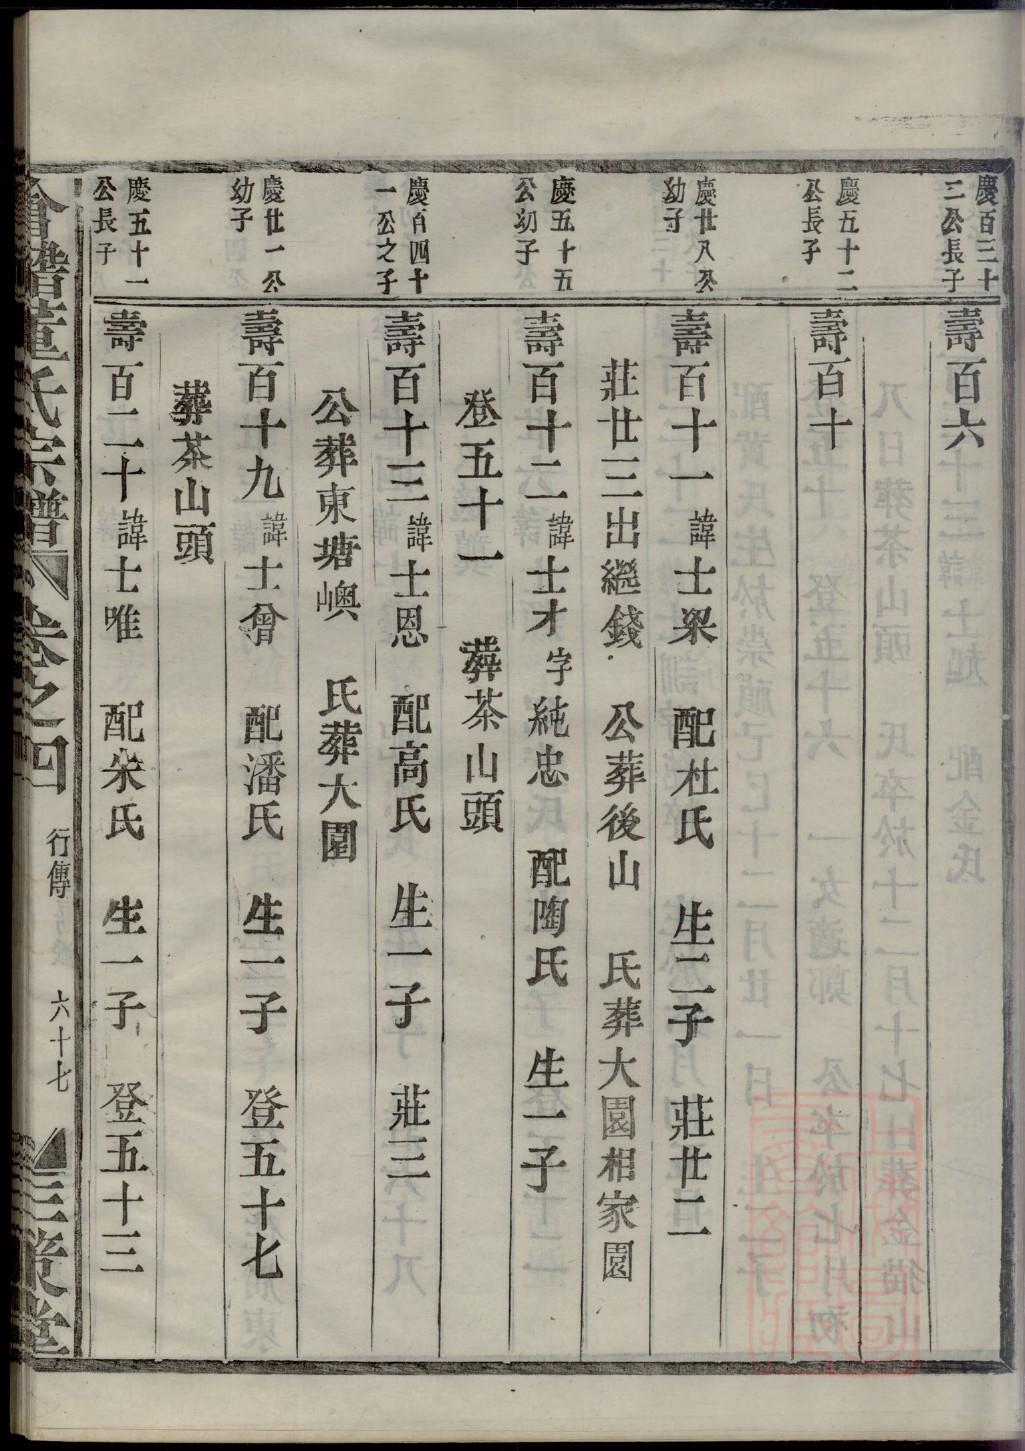 慶百三十
三公長子
壽百六
慶五十二
公長子
壽百十
慶廿八公
幼子
壽百十一諱士梁 配杜氏 生二子 莊廿二
莊廿三出繼錢 公葬後山 氏葬大園相家園
慶五十五
公幼子
壽百十二諱士才字純忠 配陶氏 生一子
登五十一 葬茶山頭
慶百四十
一公之子
壽百十三諱士恩 配高氏 生一子 莊三
公葬東塘嶼 氏葬大園
慶廿一公
幼子
壽百十九諱士曾 配潘氏 生一子 登五十七
葬茶山頭
慶五十一
公長子
壽百二十諱士唯 配朱氏 生一子 登五十三
會稽董氏宗譜 卷之四 行傳 六十七 三策堂